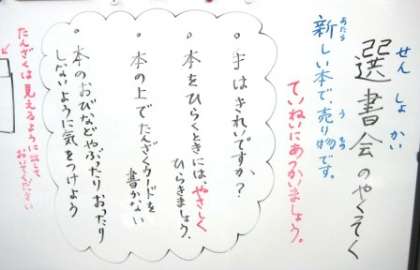 選書会のやくそく
せんしょかい
新しい本で、売り物です。
あたら
う
もの
ていねいにあつかいましょう。
・手はきれいですか？
・本をひらくときにはやさしく
ひらきましょう。
・本の上でたんざくカードを
書かない
・本のおびなどやぶったりおったり
しないように気をつけよう
たんざくは見えるように
おいてください